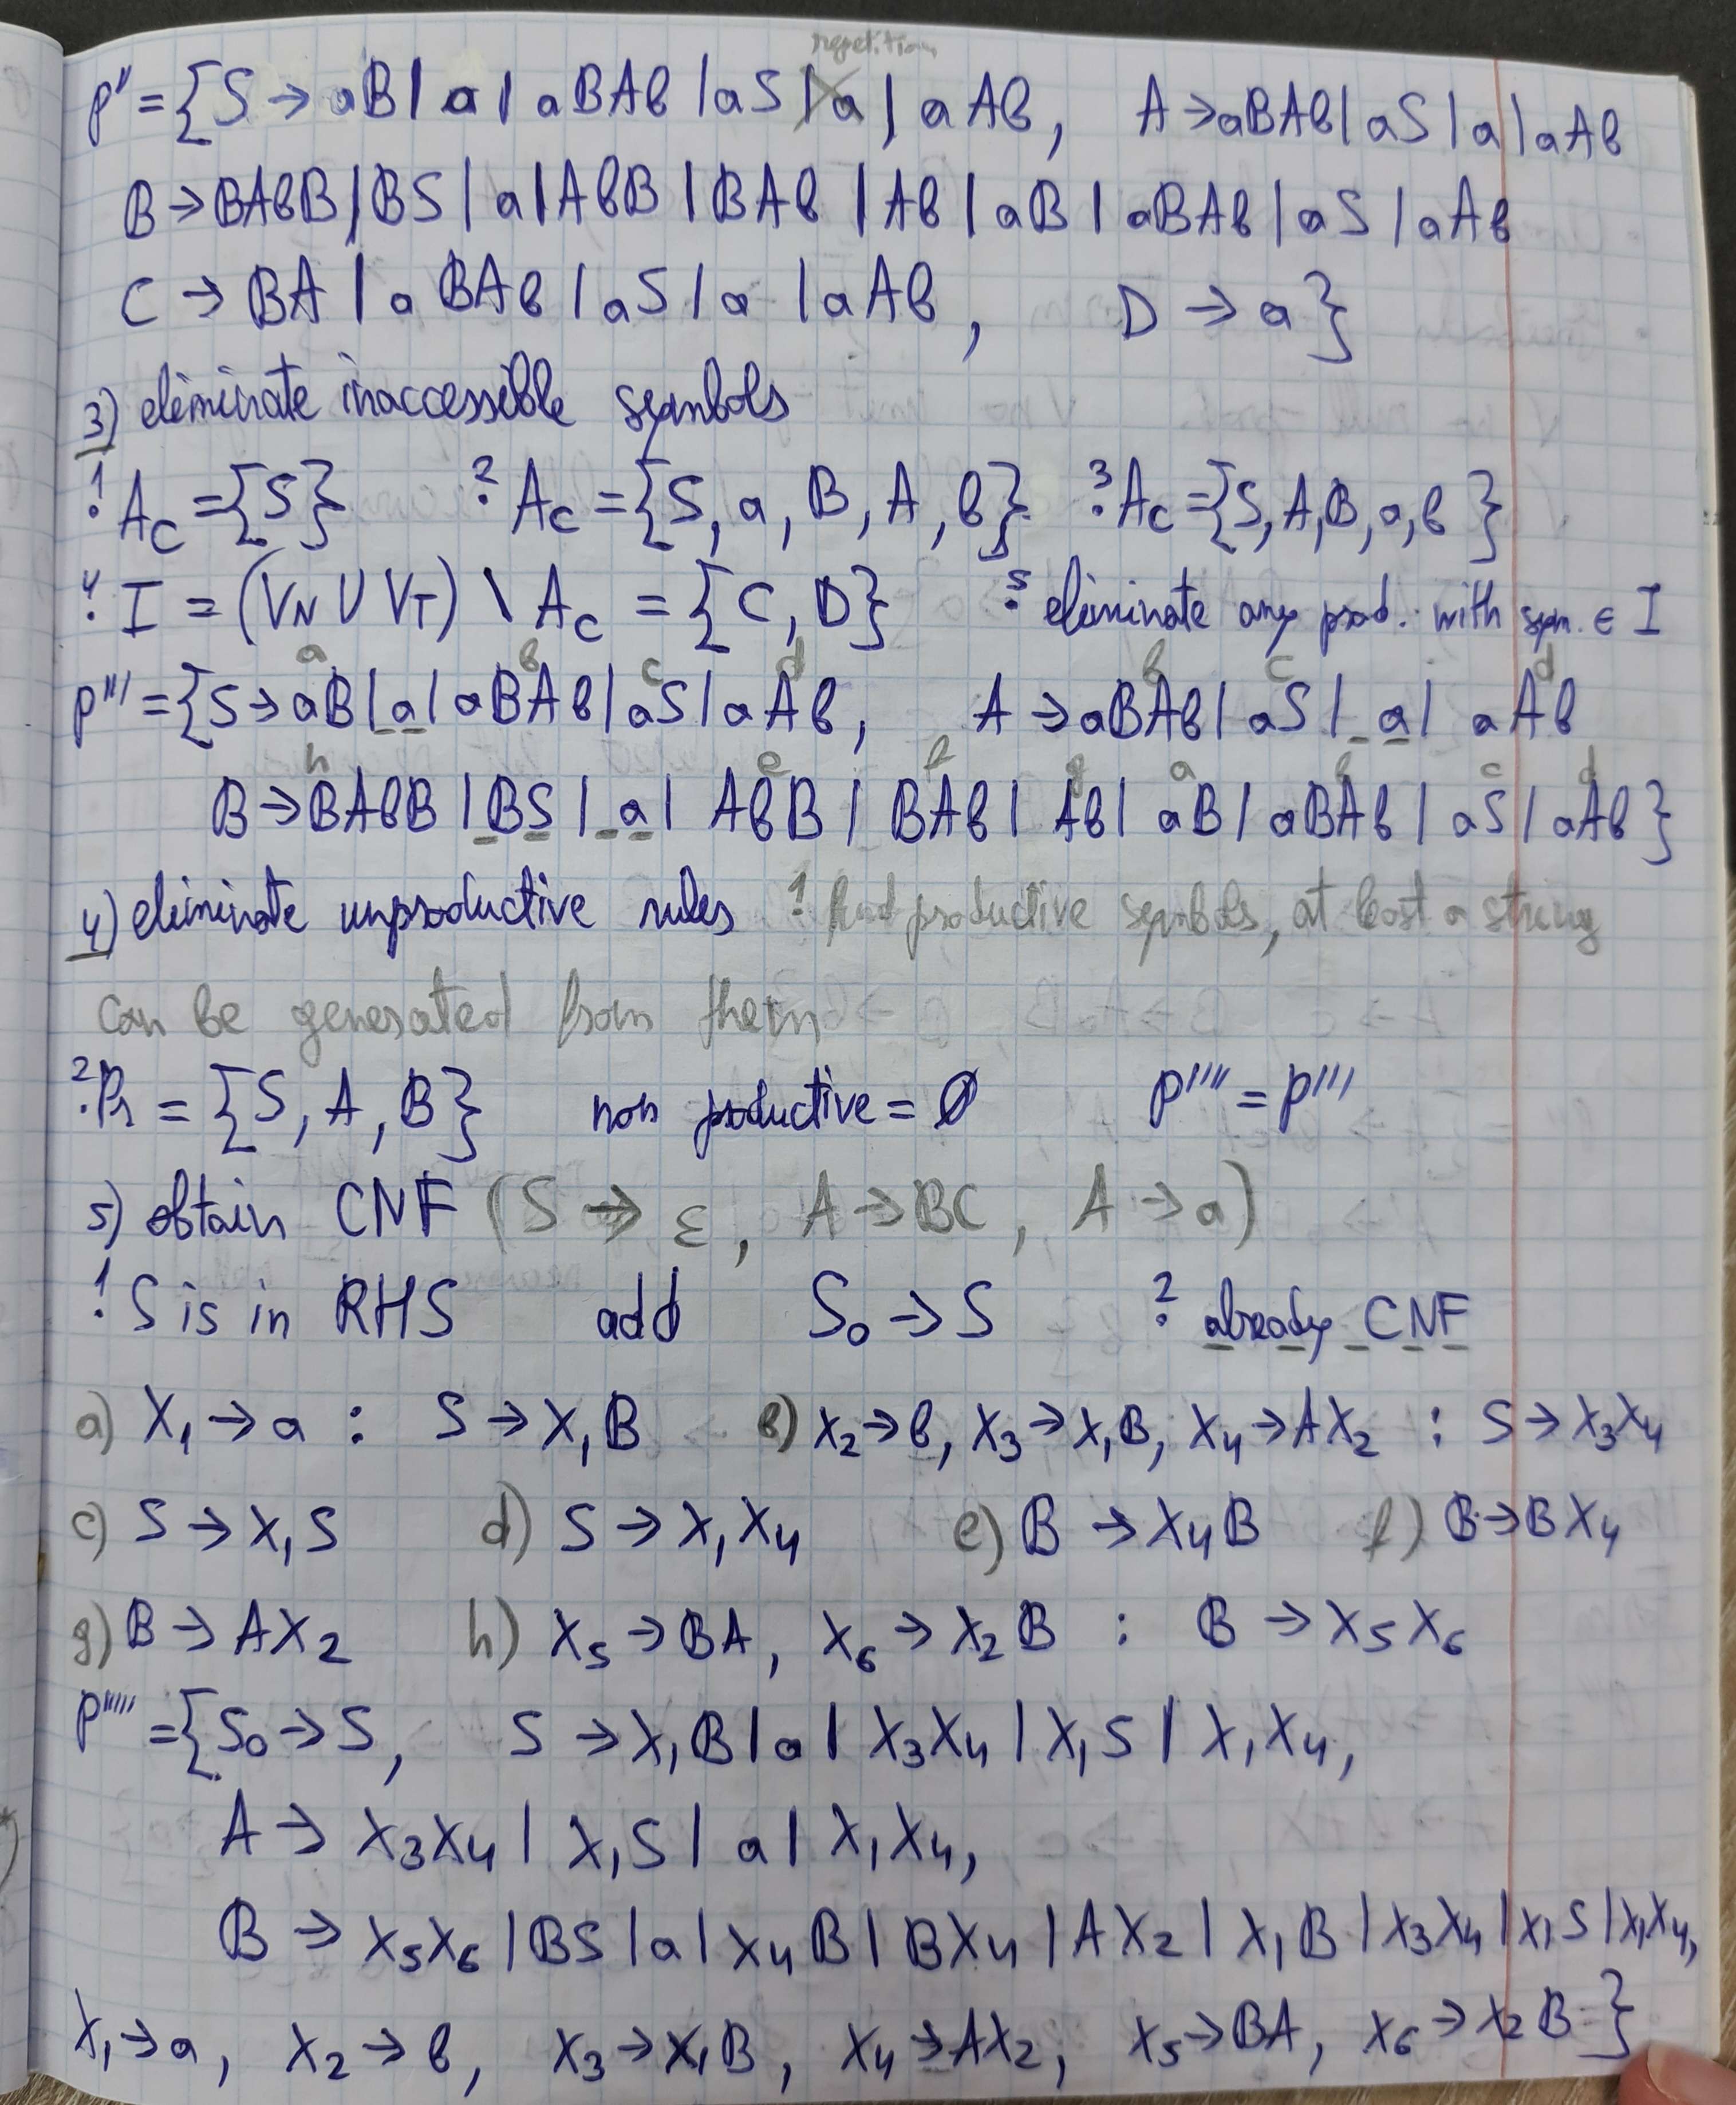 repetition
P'' = {S → aB | a | aBAb | aS | a | aAb, A → aBAb | aS | a | aAb
B → BAbB | BS | a | AbB | BAb | Ab | aB | aBAb | aS | aAb
C → BA | aBAb | aS | a | aAb, D → a}
3) eliminate inaccessible symbols
1. Ac = {S} 2. Ac = {S, a, B, A, b} 3. Ac = {S, A, B, a, b}
4. I = (VN ∪ VT) \ Ac = {C, D} 5. eliminate any prod. with sym. ∈ I
a b c d b c d
P''' = {S → aB | a | aBAb | aS | aAb, A → aBAb | aS | a | aAb
h e f g a b c d
B → BAbB | BS | a | AbB | BAb | Ab | aB | aBAb | aS | aAb}
4) eliminate unproductive rules 1. find productive symbols, at least a string
can be generated from them
2. Pr = {S, A, B} non productive = Ø P'''' = P'''
5) obtain CNF (S → ε, A → BC, A → a)
1. S is in RHS add S₀ → S 2. already CNF
a) X₁ → a : S → X₁B b) X₂ → b, X₃ → X₁B, X₄ → AX₂ : S → X₃X₄
c) S → X₁S d) S → X₁X₄ e) B → X₄B f) B → BX₄
g) B → AX₂ h) X₅ → BA, X₆ → X₂B : B → X₅X₆
P''''' = {S₀ → S, S → X₁B | a | X₃X₄ | X₁S | X₁X₄,
A → X₃X₄ | X₁S | a | X₁X₄,
B → X₅X₆ | BS | a | X₄B | BX₄ | AX₂ | X₁B | X₃X₄ | X₁S | X₁X₄,
X₁ → a, X₂ → b, X₃ → X₁B, X₄ → AX₂, X₅ → BA, X₆ → X₂B}